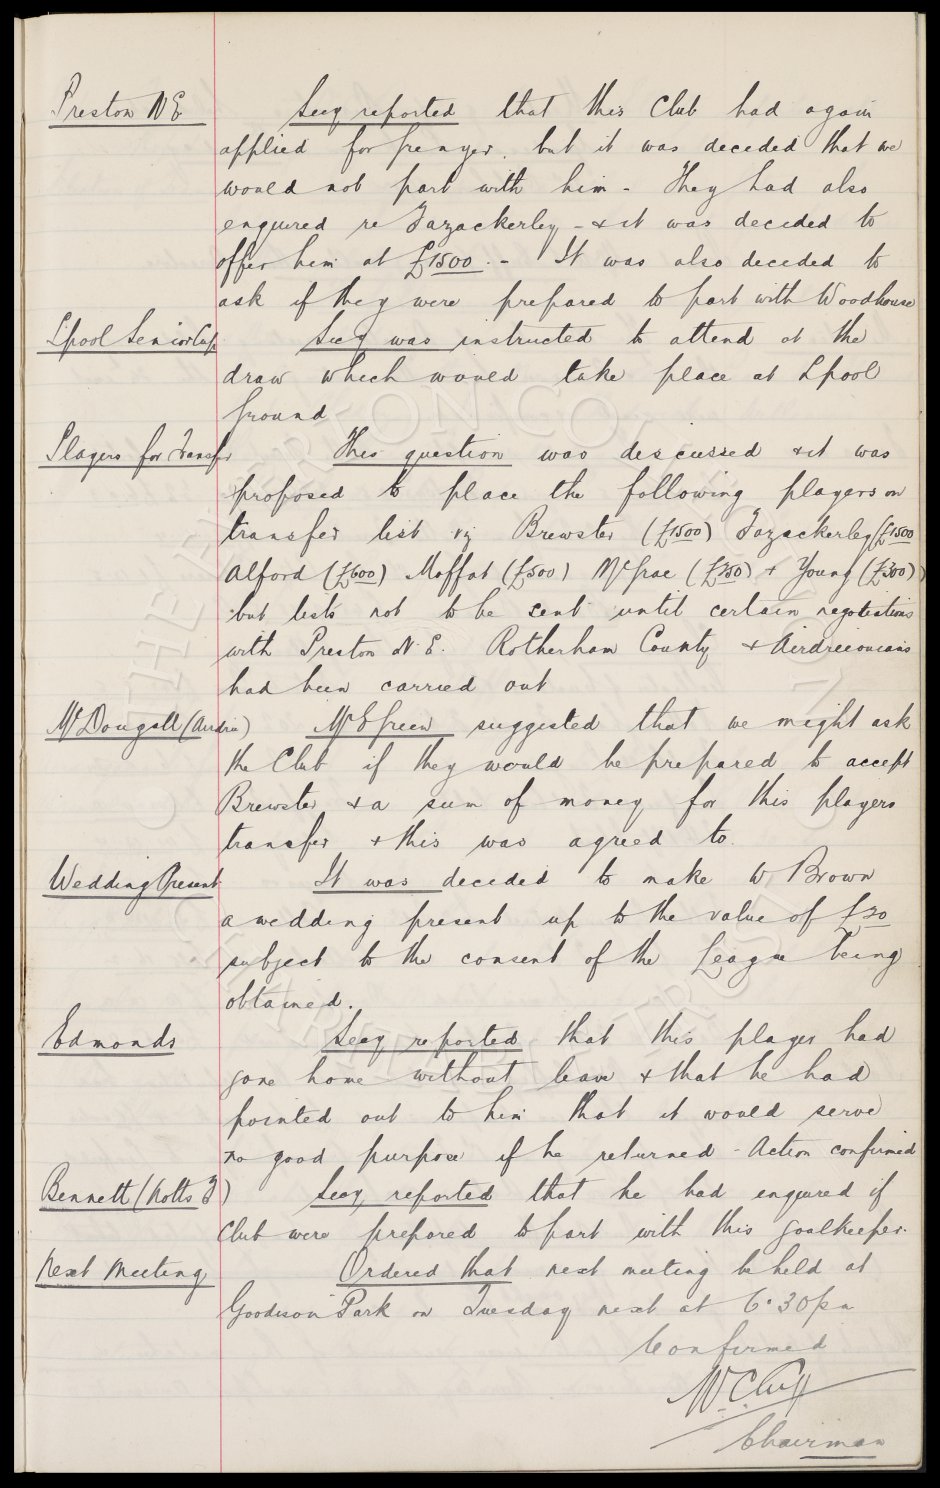 Preston N E
Secy reported that this Club had again
applied for Grenyer. but it was decided that we
would not part with him - They had also
enquired re Fazackerley - & it was decided to
offer him at £1500. - It was also decided to
ask if they were prepared to part with Woodhouse
Lpool Senior Cup
Secy was instructed to attend at the
draw which would take place at Lpool
Ground
Players for Transfer
This question was discussed & it was
proposed to place the following players on
transfer list viz Brewster (£1500) Fazackerley (£1500
Alford (£600) Moffat (£500) McGrae (£350) & Young (£300)
but lists not to be sent until certain negotiations
with Preston N. E. Rotherham County & Airdrieonians
had been carried out
McDougall (Airdrie)
Mr E Green suggested that we might ask
the Club if they would be prepared to accept
Brewster & a sum of money for this players
transfer & this was agreed to.
Wedding Present
It was decided to make W Brown
a wedding present up to the value of £20
subject to the consent of the League being
obtained.
Edmonds
Secy reported that this player had
gone home without leave & that he had
pointed out to him that it would serve
no good purpose if he returned - Action confirmed
Bennett (Notts F)
Secy reported that he had enquired if
Club were prepared to part with this goalkeeper.
Next Meeting
Ordered that next meeting be held at
Goodison Park on Tuesday next at 6.30pm
Confirmed
W. C. Cuff
Chairman